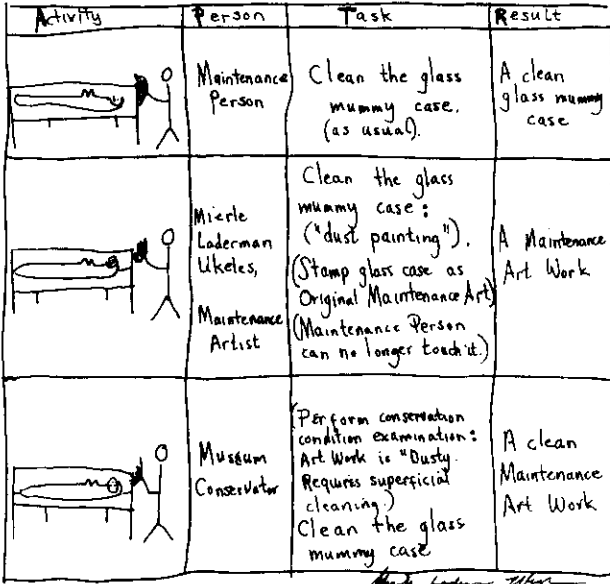 Activity Person Task Result
Maintenance
Person
Clean the glass
mummy case.
(as usual).
A clean
glass mummy
case
Mierle
Laderman
Ukeles,
Maintenance
Artist
Clean the glass
mummy case:
("dust painting").
(Stamp glass case as
Original Maintenance Art)
(Maintenance Person
can no longer touch it.)
A Maintenance
Art Work
Museum
Conservator
(Perform conservation
condition examination:
Art Work is "Dusty.
Requires superficial
cleaning.)
Clean the glass
mummy case
A clean
Maintenance
Art Work